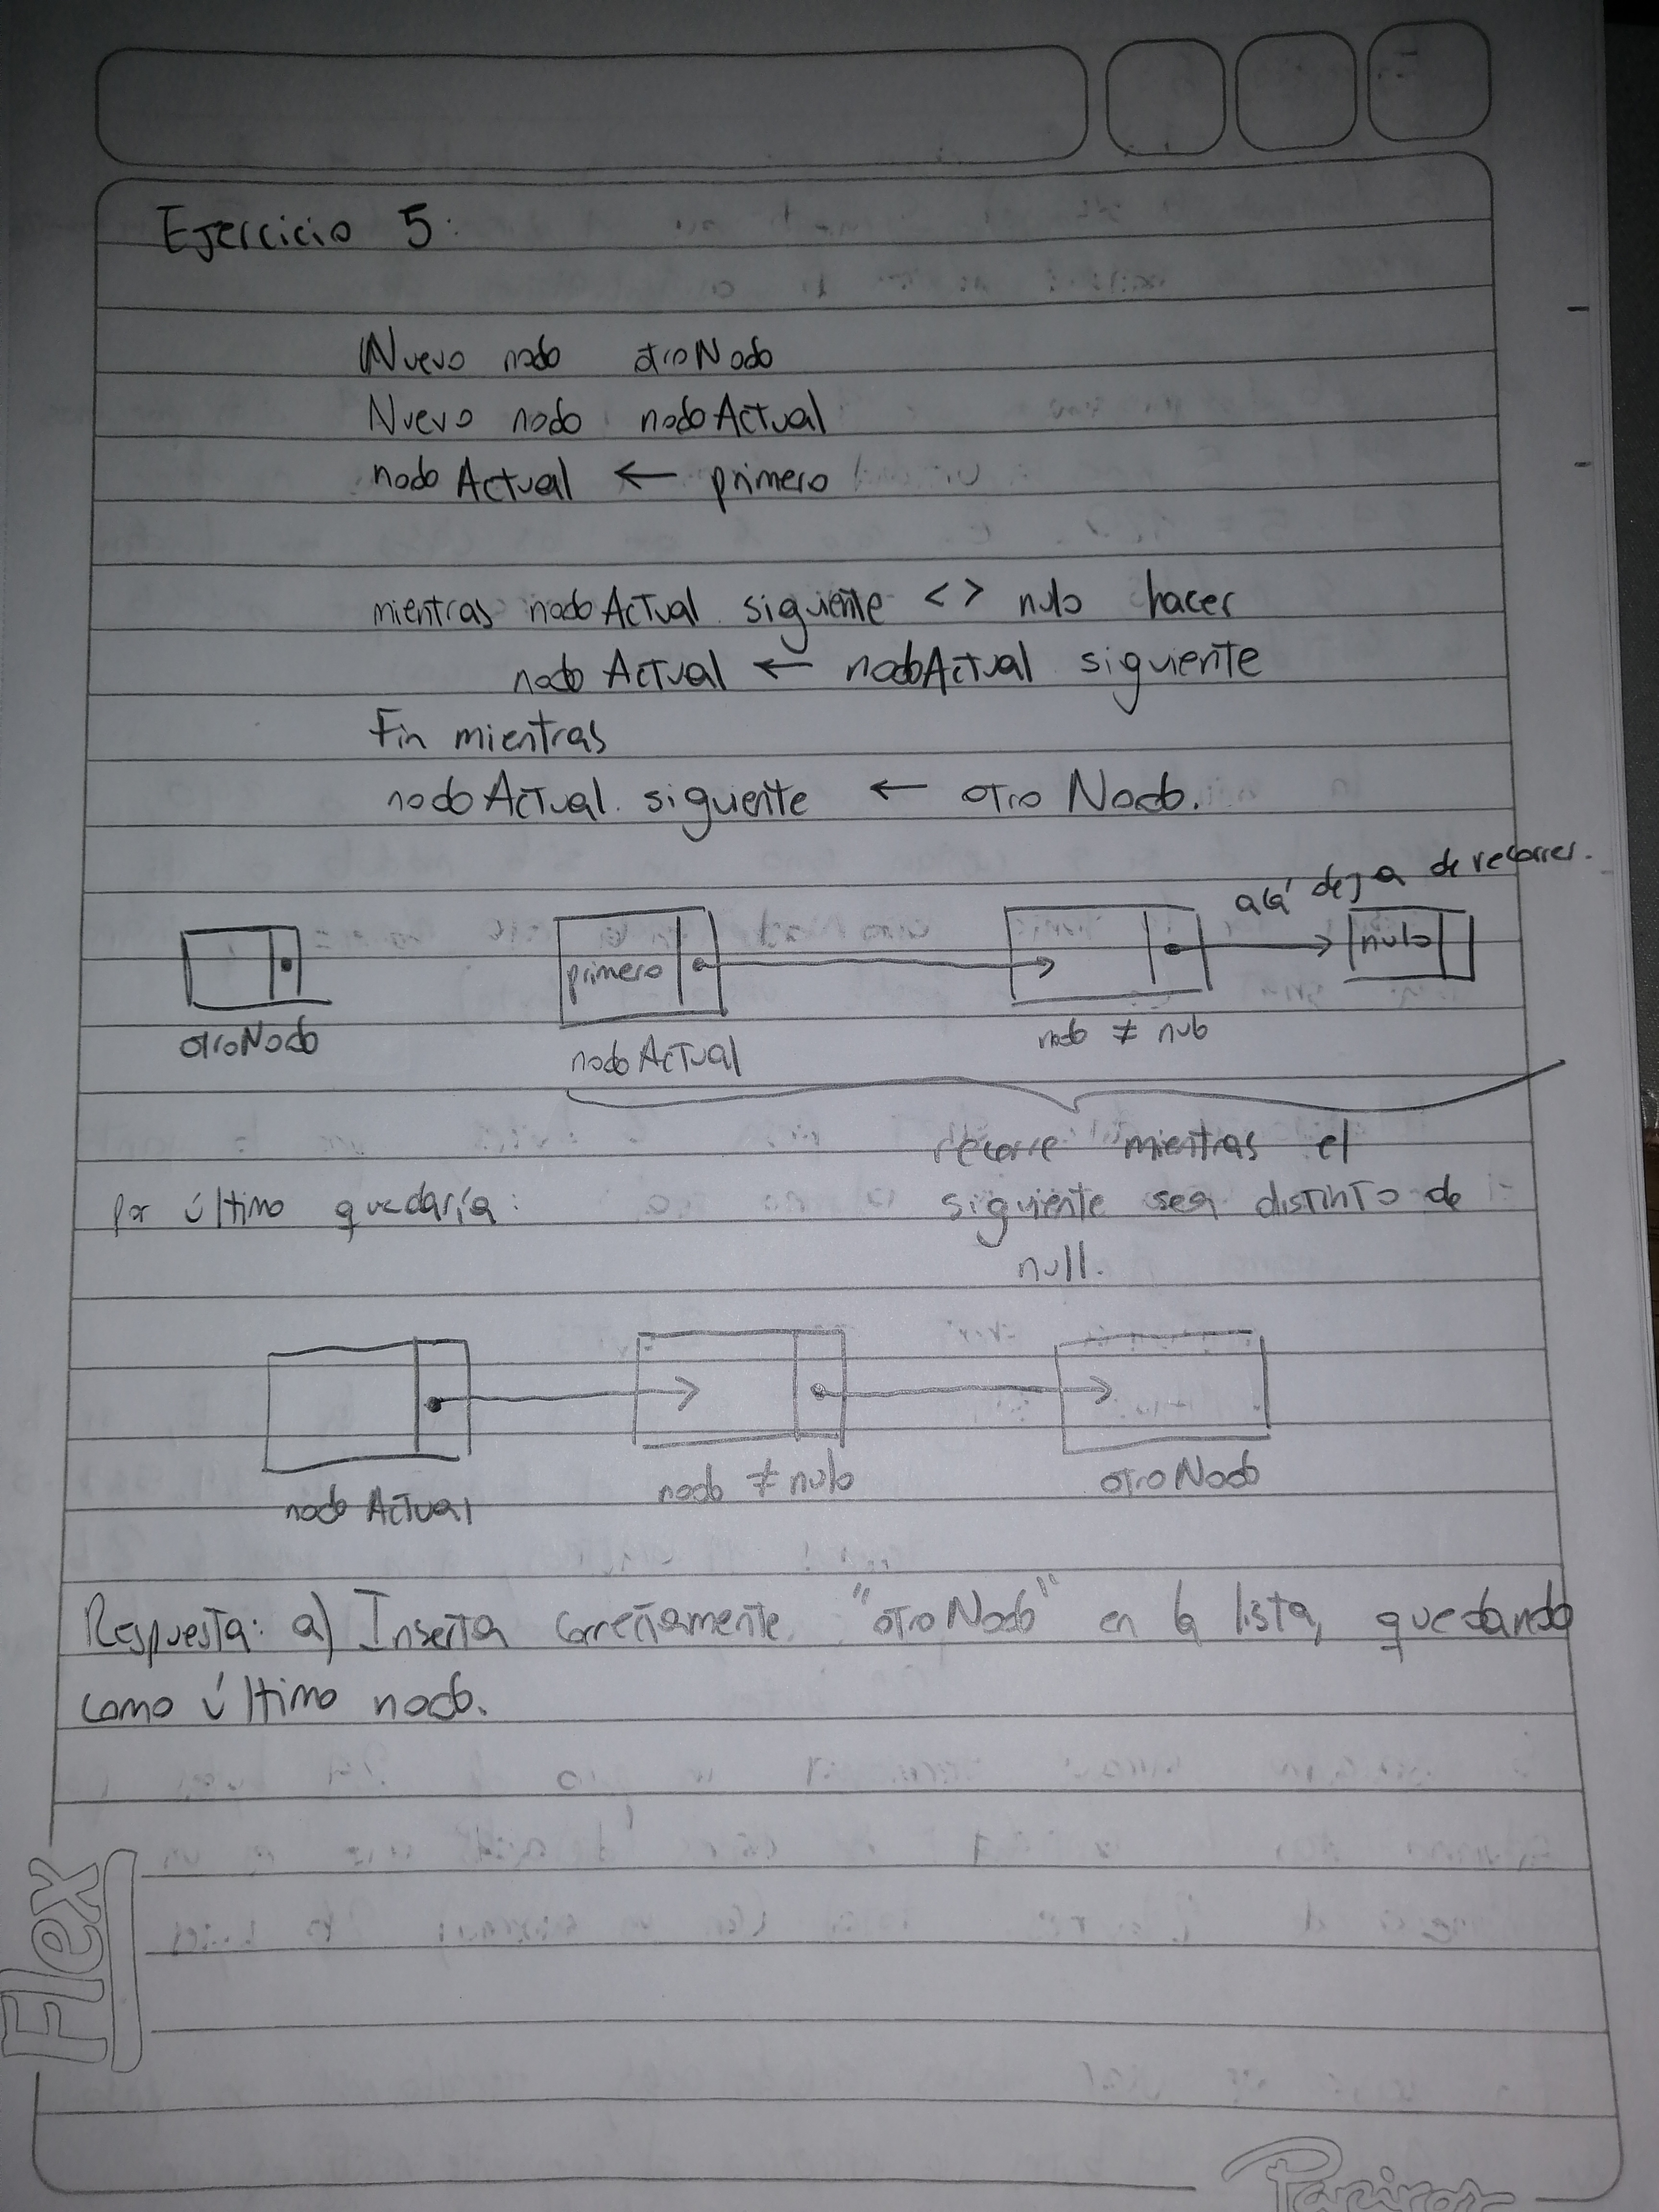 Ejercicio 5:
Nuevo nodo otroNodo
Nuevo nodo nodoActual
nodoActual ← primero
mientras nodoActual.siguiente <> nulo hacer
nodoActual ← nodoActual siguiente
Fin mientras
nodoActual.siguiente ← otroNodo.
acá deja de recorrer.
primero
nulo
otroNodo
nodoActual
nodo ≠ nulo
recorre mientras el
siguiente sea distinto de
null.
Por último quedaría:
nodoActual
nodo ≠ nulo
otroNodo
Respuesta: a) Inserta correctamente "otroNodo" en la lista, quedando
como último nodo.
Flex